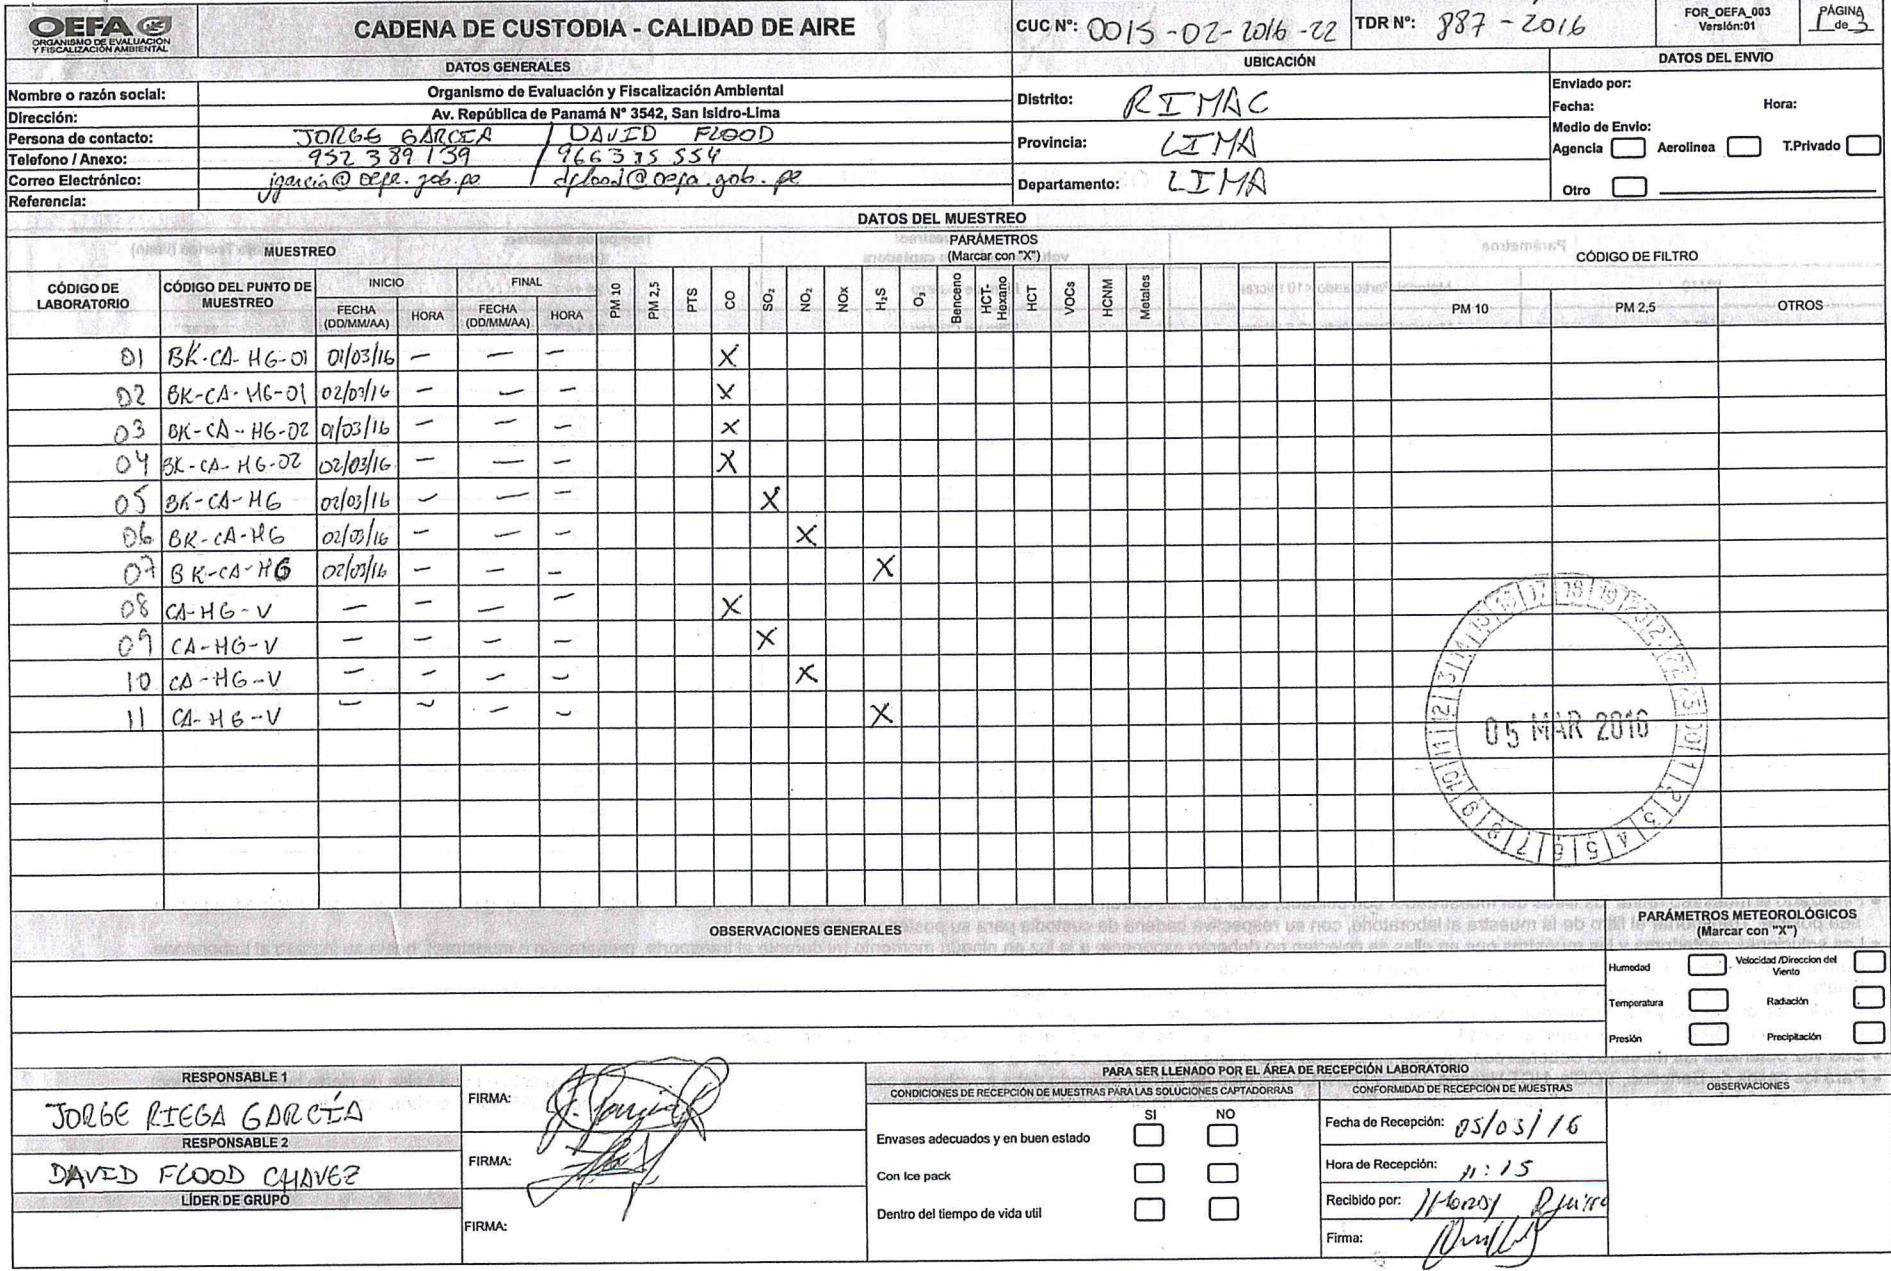 OEFA
ORGANISMO DE EVALUACIÓN
Y FISCALIZACIÓN AMBIENTAL
CADENA DE CUSTODIA - CALIDAD DE AIRE
CUC Nº: 0015-02-2016-22
TDR Nº: 887-2016
FOR_OEFA_003
Versión:01
PÁGINA
1 de 3
DATOS GENERALES
UBICACIÓN
DATOS DEL ENVIO
Nombre o razón social: Organismo de Evaluación y Fiscalización Ambiental
Dirección: Av. República de Panamá Nº 3542, San Isidro-Lima
Persona de contacto: JORGE GARCIA / DAVID FLOOD
Telefono / Anexo: 952389139 / 966335554
Correo Electrónico: jgarcia@oefa.gob.pe / dflood@oefa.gob.pe
Referencia:
Distrito: RIMAC
Provincia: LIMA
Departamento: LIMA
Enviado por:
Fecha: Hora:
Medio de Envio:
Agencia Aerolinea T.Privado
Otro
DATOS DEL MUESTREO
MUESTREO
PARÁMETROS
(Marcar con "X")
CÓDIGO DE FILTRO
CÓDIGO DE LABORATORIO
CÓDIGO DEL PUNTO DE MUESTREO
INICIO
FINAL
FECHA (DD/MM/AA) HORA FECHA (DD/MM/AA) HORA
PM 10 PM 2,5 PTS CO SO₂ NO₂ NOx H₂S O₃ Benceno HCT-Hexano HCT VOCs HCNM Metales
PM 10 PM 2,5 OTROS
01 BK-CA-HG-01 01/03/16 — — — X
02 BK-CA-HG-01 02/03/16 — — — X
03 BK-CA-HG-02 01/03/16 — — — X
04 BK-CA-HG-02 02/03/16 — — — X
05 BK-CA-HG 02/03/16 — — — X
06 BK-CA-HG 02/03/16 — — — X
07 BK-CA-HG 02/03/16 — — — X
08 CA-HG-V — — — — X
09 CA-HG-V — — — — X
10 CA-HG-V — — — — X
11 CA-HG-V — — — — X
05 MAR 2016
OBSERVACIONES GENERALES
PARÁMETROS METEOROLÓGICOS
(Marcar con "X")
Humedad Velocidad /Direccion del Viento
Temperatura Radiación
Presión Precipitación
RESPONSABLE 1
JORGE RIEGA GARCÍA
FIRMA:
RESPONSABLE 2
DAVID FLOOD CHAVEZ
FIRMA:
LÍDER DE GRUPO
FIRMA:
PARA SER LLENADO POR EL ÁREA DE RECEPCIÓN LABORATORIO
CONDICIONES DE RECEPCIÓN DE MUESTRAS PARA LAS SOLUCIONES CAPTADORRAS
SI NO
Envases adecuados y en buen estado
Con Ice pack
Dentro del tiempo de vida util
CONFORMIDAD DE RECEPCIÓN DE MUESTRAS
Fecha de Recepción: 05/03/16
Hora de Recepción: 11:15
Recibido por:
Firma:
OBSERVACIONES